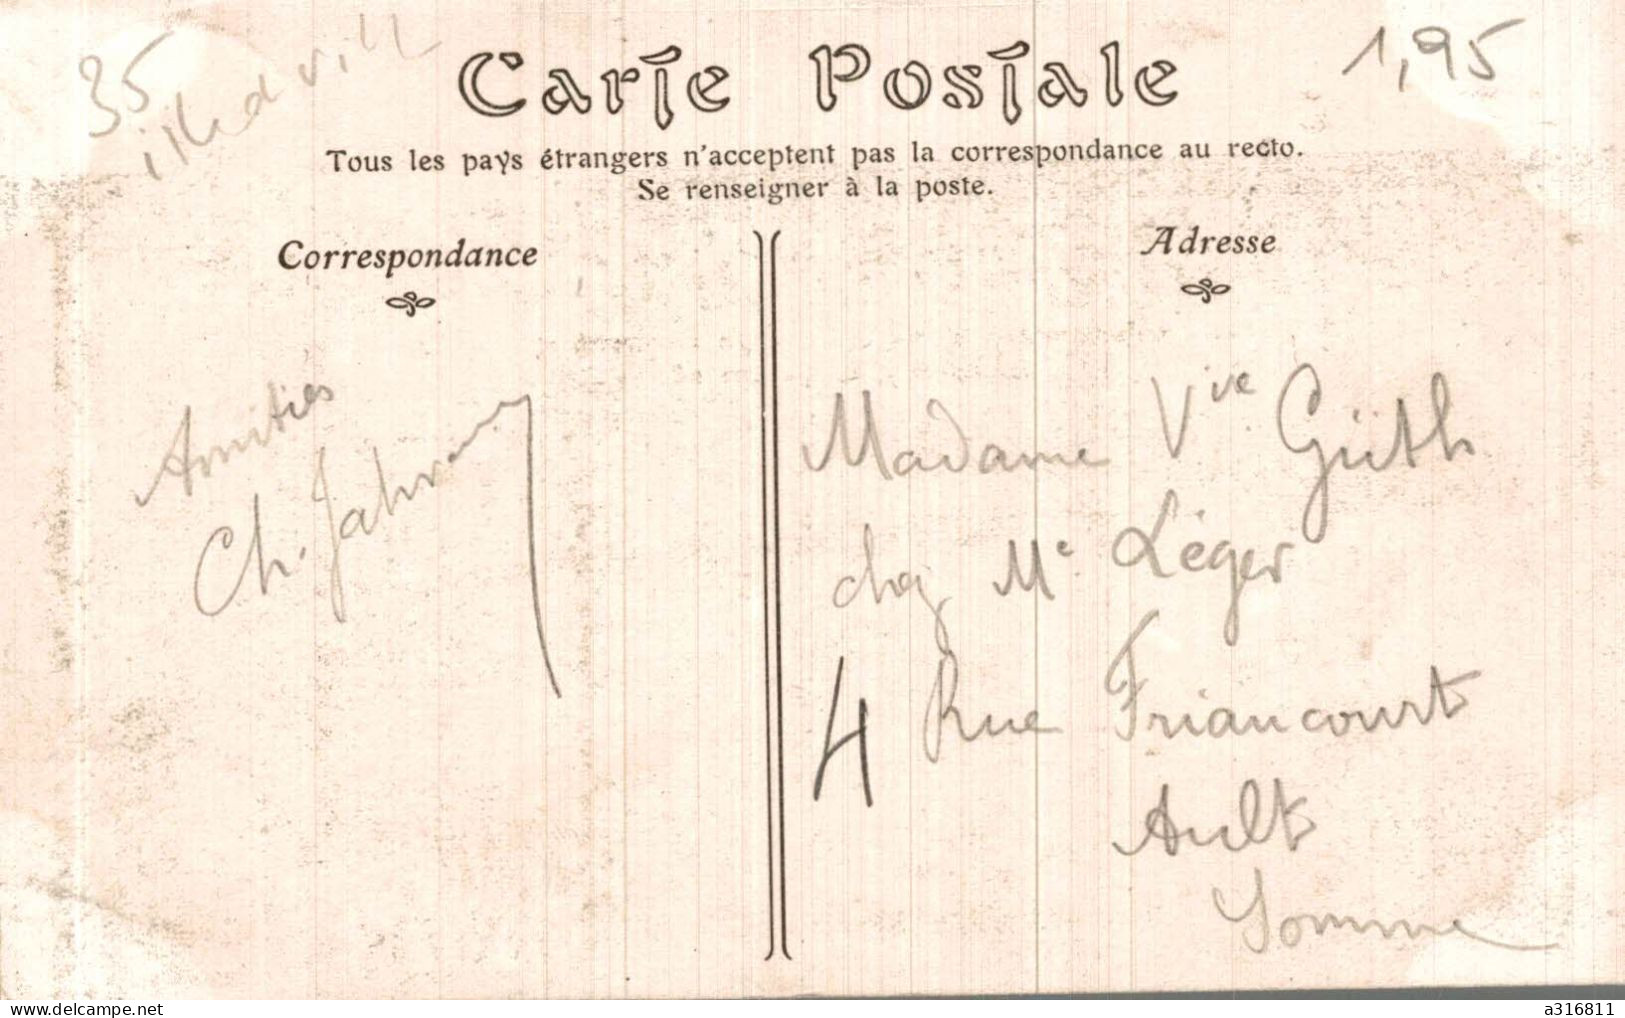 35
1,95
Carte Postale
Tous les pays étrangers n'acceptent pas la correspondance au recto.
Se renseigner à la poste.
Correspondance
Adresse
Amitiés
Ch.
Madame Vve Güth
chez Me Léger
4 Rue Friancourt
Ault
Somme
delcampe.net
a316811